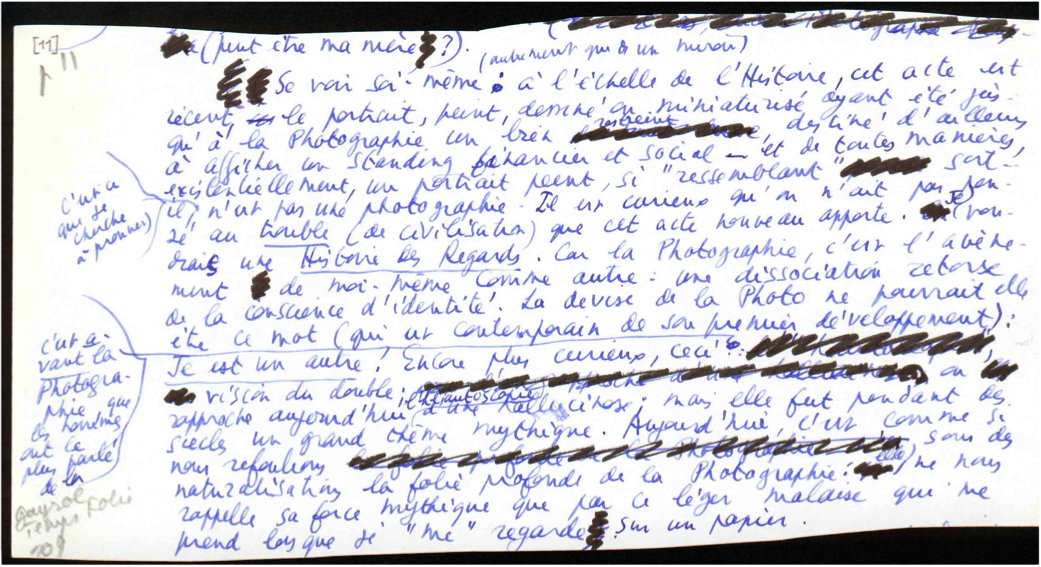 [11]
(peut être ma mère ?).
(autrement que ds un miroir)
Se voir soi-même : à l'échelle de l'Histoire, cet acte est
récent, le portrait, peint, dessiné ou miniaturisé ayant été jus-
qu'à la Photographie un bien restreint, destiné d'ailleurs
à afficher un standing financier et social — et de toutes manières,
existentiellement, un portrait peint, si "ressemblant" soit-
il, n'est pas une photographie. Il est curieux qu'on n'ait pas pen-
sé au trouble (de civilisation) que cet acte nouveau apporte. Je (vou-
drais une Histoire des Regards. Car la Photographie, c'est l'avène-
ment de moi-même comme autre : une dissociation retorse
de la conscience d'identité. La devise de la Photo ne pourrait elle
être ce mot (qui est contemporain de son premier développement) :
Je est un autre ? Encore plus curieux, ceci :
ou
vision du double ; l'héautoscopie
rapproche aujourd'hui d'une hallucinose, mais elle fut pendant des
siècles un grand thème mythique. Aujourd'hui, c'est comme si
nous refoulions sous des
naturalisations la folie profonde de la Photographie : elle ne nous
rappelle sa force mythique que par ce léger malaise qui me
prend lorsque je "me" regarde sur un papier.
c'est ce
que je
cherche
à prouver)
c'est a-
vant la
Photogra-
phie que
les hommes
ont ce
plus parlé
de la
folie
109